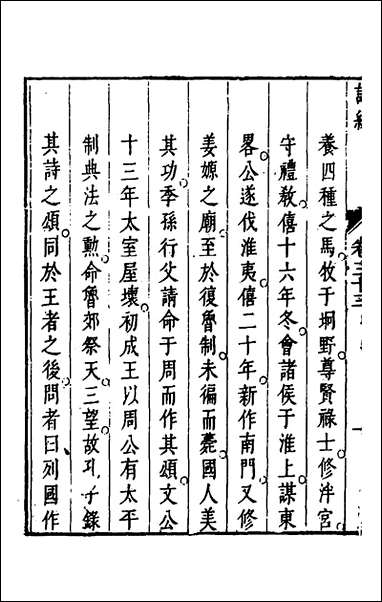 詩經
卷三十三
養四種之馬牧于坰野尊賢祿士修泮宮
守禮敎僖十六年冬會諸侯于淮上謀東
畧公遂伐淮夷僖二十年新作南門又修
姜嫄之廟至於復魯制未徧而薨國人美
其功季孫行父請命于周而作其頌文公
十三年太室屋壞初成王以周公有太平
制典法之勲命魯郊祭天三望故孔子錄
其詩之頌同於王者之後問者曰列國作